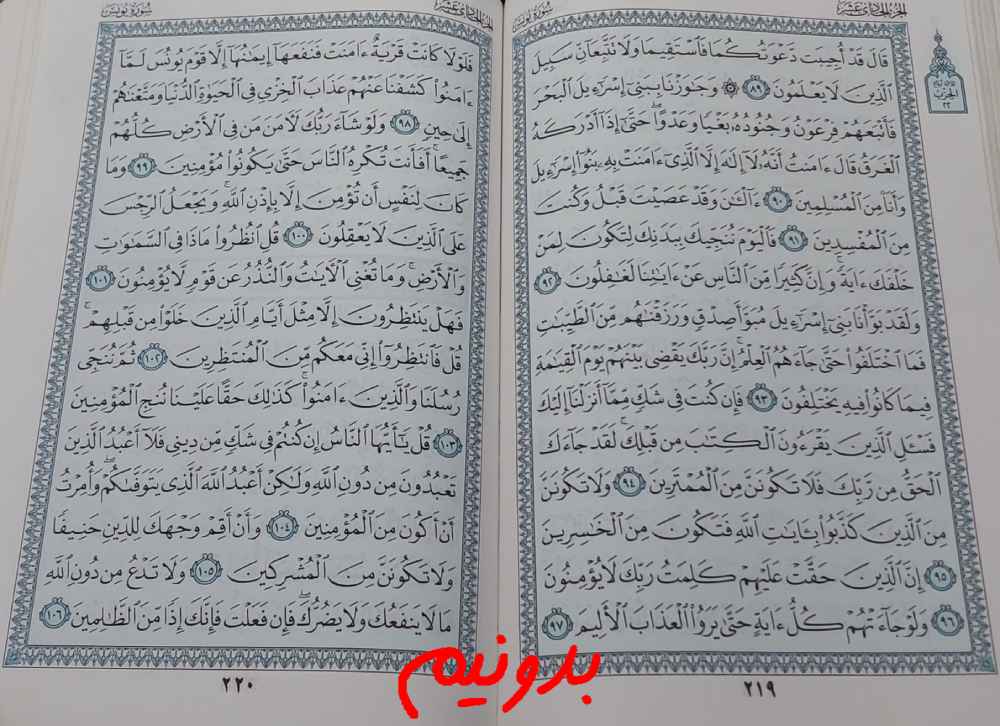 الجزء الحادي عشر
سورة يونس
قَالَ قَدْ أُجِيبَت دَّعْوَتُكُمَا فَٱسْتَقِيمَا وَلَا تَتَّبِعَآنِّ سَبِيلَ
ٱلَّذِينَ لَا يَعْلَمُونَ ٨٩ ۞ وَجَٰوَزْنَا بِبَنِىٓ إِسْرَٰٓءِيلَ ٱلْبَحْرَ
فَأَتْبَعَهُمْ فِرْعَوْنُ وَجُنُودُهُۥ بَغْيًا وَعَدْوًا ۖ حَتَّىٰٓ إِذَآ أَدْرَكَهُ
ٱلْغَرَقُ قَالَ ءَامَنتُ أَنَّهُۥ لَآ إِلَٰهَ إِلَّا ٱلَّذِىٓ ءَامَنَتْ بِهِۦ بَنُوٓا۟ إِسْرَٰٓءِيلَ
وَأَنَا۠ مِنَ ٱلْمُسْلِمِينَ ٩٠ ءَآلْـَٰٔنَ وَقَدْ عَصَيْتَ قَبْلُ وَكُنتَ
مِنَ ٱلْمُفْسِدِينَ ٩١ فَٱلْيَوْمَ نُنَجِّيكَ بِبَدَنِكَ لِتَكُونَ لِمَنْ
خَلْفَكَ ءَايَةً ۚ وَإِنَّ كَثِيرًا مِّنَ ٱلنَّاسِ عَنْ ءَايَٰتِنَا لَغَٰفِلُونَ ٩٢
وَلَقَدْ بَوَّأْنَا بَنِىٓ إِسْرَٰٓءِيلَ مُبَوَّأَ صِدْقٍ وَرَزَقْنَٰهُم مِّنَ ٱلطَّيِّبَٰتِ
فَمَا ٱخْتَلَفُوا۟ حَتَّىٰ جَآءَهُمُ ٱلْعِلْمُ ۚ إِنَّ رَبَّكَ يَقْضِى بَيْنَهُمْ يَوْمَ ٱلْقِيَٰمَةِ
فِيمَا كَانُوا۟ فِيهِ يَخْتَلِفُونَ ٩٣ فَإِن كُنتَ فِى شَكٍّ مِّمَّآ أَنزَلْنَآ إِلَيْكَ
فَسْـَٔلِ ٱلَّذِينَ يَقْرَءُونَ ٱلْكِتَٰبَ مِن قَبْلِكَ ۚ لَقَدْ جَآءَكَ
ٱلْحَقُّ مِن رَّبِّكَ فَلَا تَكُونَنَّ مِنَ ٱلْمُمْتَرِينَ ٩٤ وَلَا تَكُونَنَّ
مِنَ ٱلَّذِينَ كَذَّبُوا۟ بِـَٔايَٰتِ ٱللَّهِ فَتَكُونَ مِنَ ٱلْخَٰسِرِينَ
٩٥ إِنَّ ٱلَّذِينَ حَقَّتْ عَلَيْهِمْ كَلِمَتُ رَبِّكَ لَا يُؤْمِنُونَ
٩٦ وَلَوْ جَآءَتْهُمْ كُلُّ ءَايَةٍ حَتَّىٰ يَرَوُا۟ ٱلْعَذَابَ ٱلْأَلِيمَ ٩٧
٢١٩
الحزب
٢٢
الجزء الحادي عشر
سورة يونس
فَلَوْلَا كَانَتْ قَرْيَةٌ ءَامَنَتْ فَنَفَعَهَآ إِيمَٰنُهَآ إِلَّا قَوْمَ يُونُسَ لَمَّآ
ءَامَنُوا۟ كَشَفْنَا عَنْهُمْ عَذَابَ ٱلْخِزْىِ فِى ٱلْحَيَوٰةِ ٱلدُّنْيَا وَمَتَّعْنَٰهُمْ
إِلَىٰ حِينٍ ٩٨ وَلَوْ شَآءَ رَبُّكَ لَءَامَنَ مَن فِى ٱلْأَرْضِ كُلُّهُمْ
جَمِيعًا ۚ أَفَأَنتَ تُكْرِهُ ٱلنَّاسَ حَتَّىٰ يَكُونُوا۟ مُؤْمِنِينَ ٩٩ وَمَا
كَانَ لِنَفْسٍ أَن تُؤْمِنَ إِلَّا بِإِذْنِ ٱللَّهِ ۚ وَيَجْعَلُ ٱلرِّجْسَ
عَلَى ٱلَّذِينَ لَا يَعْقِلُونَ ١٠٠ قُلِ ٱنظُرُوا۟ مَاذَا فِى ٱلسَّمَٰوَٰتِ
وَٱلْأَرْضِ ۚ وَمَا تُغْنِى ٱلْءَايَٰتُ وَٱلنُّذُرُ عَن قَوْمٍ لَّا يُؤْمِنُونَ ١٠١
فَهَلْ يَنتَظِرُونَ إِلَّا مِثْلَ أَيَّامِ ٱلَّذِينَ خَلَوْا۟ مِن قَبْلِهِمْ ۚ
قُلْ فَٱنتَظِرُوٓا۟ إِنِّى مَعَكُم مِّنَ ٱلْمُنتَظِرِينَ ١٠٢ ثُمَّ نُنَجِّى
رُسُلَنَا وَٱلَّذِينَ ءَامَنُوا۟ ۚ كَذَٰلِكَ حَقًّا عَلَيْنَا نُنجِ ٱلْمُؤْمِنِينَ
١٠٣ قُلْ يَٰٓأَيُّهَا ٱلنَّاسُ إِن كُنتُمْ فِى شَكٍّ مِّن دِينِى فَلَآ أَعْبُدُ ٱلَّذِينَ
تَعْبُدُونَ مِن دُونِ ٱللَّهِ وَلَٰكِنْ أَعْبُدُ ٱللَّهَ ٱلَّذِى يَتَوَفَّىٰكُمْ ۖ وَأُمِرْتُ
أَنْ أَكُونَ مِنَ ٱلْمُؤْمِنِينَ ١٠٤ وَأَنْ أَقِمْ وَجْهَكَ لِلدِّينِ حَنِيفًا
وَلَا تَكُونَنَّ مِنَ ٱلْمُشْرِكِينَ ١٠٥ وَلَا تَدْعُ مِن دُونِ ٱللَّهِ
مَا لَا يَنفَعُكَ وَلَا يَضُرُّكَ ۖ فَإِن فَعَلْتَ فَإِنَّكَ إِذًا مِّنَ ٱلظَّٰلِمِينَ ١٠٦
٢٢٠
بدونیم